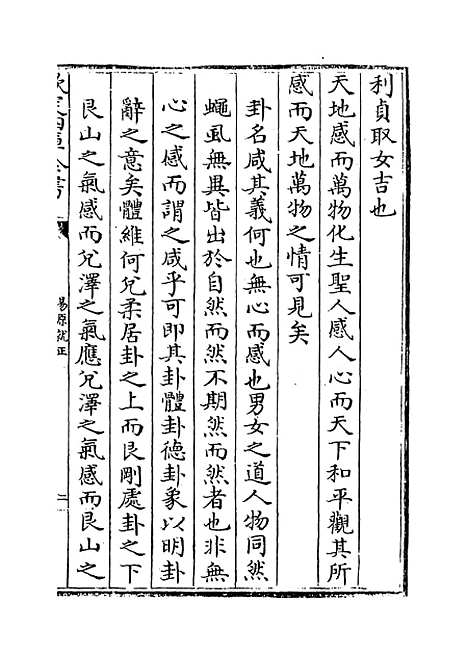 利貞取女吉也
天地感而萬物化生聖人感人心而天下和平觀其所
感而天地萬物之情可見矣
卦名咸其義何也無心而感也男女之道人物同然
蠅虱無異皆出於自然而然不期然而然者也非無
心之感而謂之咸乎可即其卦體卦德卦象以明卦
辭之意矣體維何兌柔居卦之上而艮剛處卦之下
艮山之氣感而兌澤之氣應兌澤之氣感而艮山之
欽定四庫全書
易原就正
二